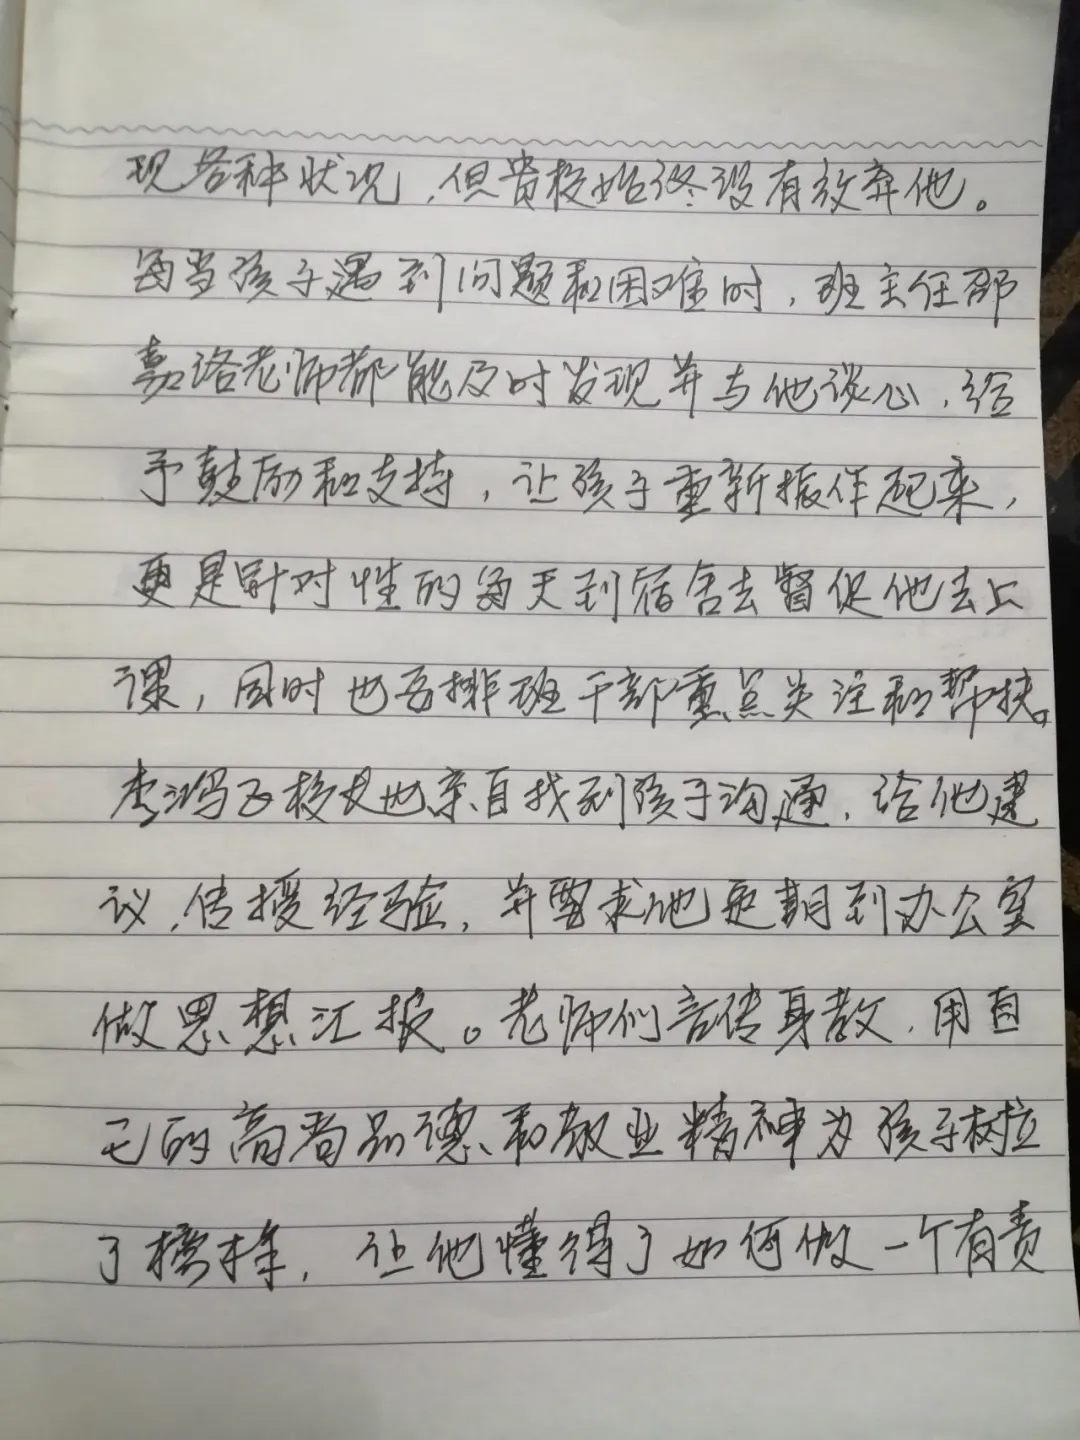 现各种状况，但贵校始终没有放弃他。
每当孩子遇到问题和困难时，班主任邵
嘉洛老师都能及时发现并与他谈心，给
予鼓励和支持，让孩子重新振作起来，
更是针对性的每天到宿舍去督促他去上
课，同时也安排班干部重点关注和帮扶。
李鸿飞校长也亲自找到孩子沟通，给他建
议，传授经验，并要求他定期到办公室
做思想汇报。老师们言传身教，用自
己的高尚品德和敬业精神为孩子树立
了榜样，让他懂得了如何做一个有责